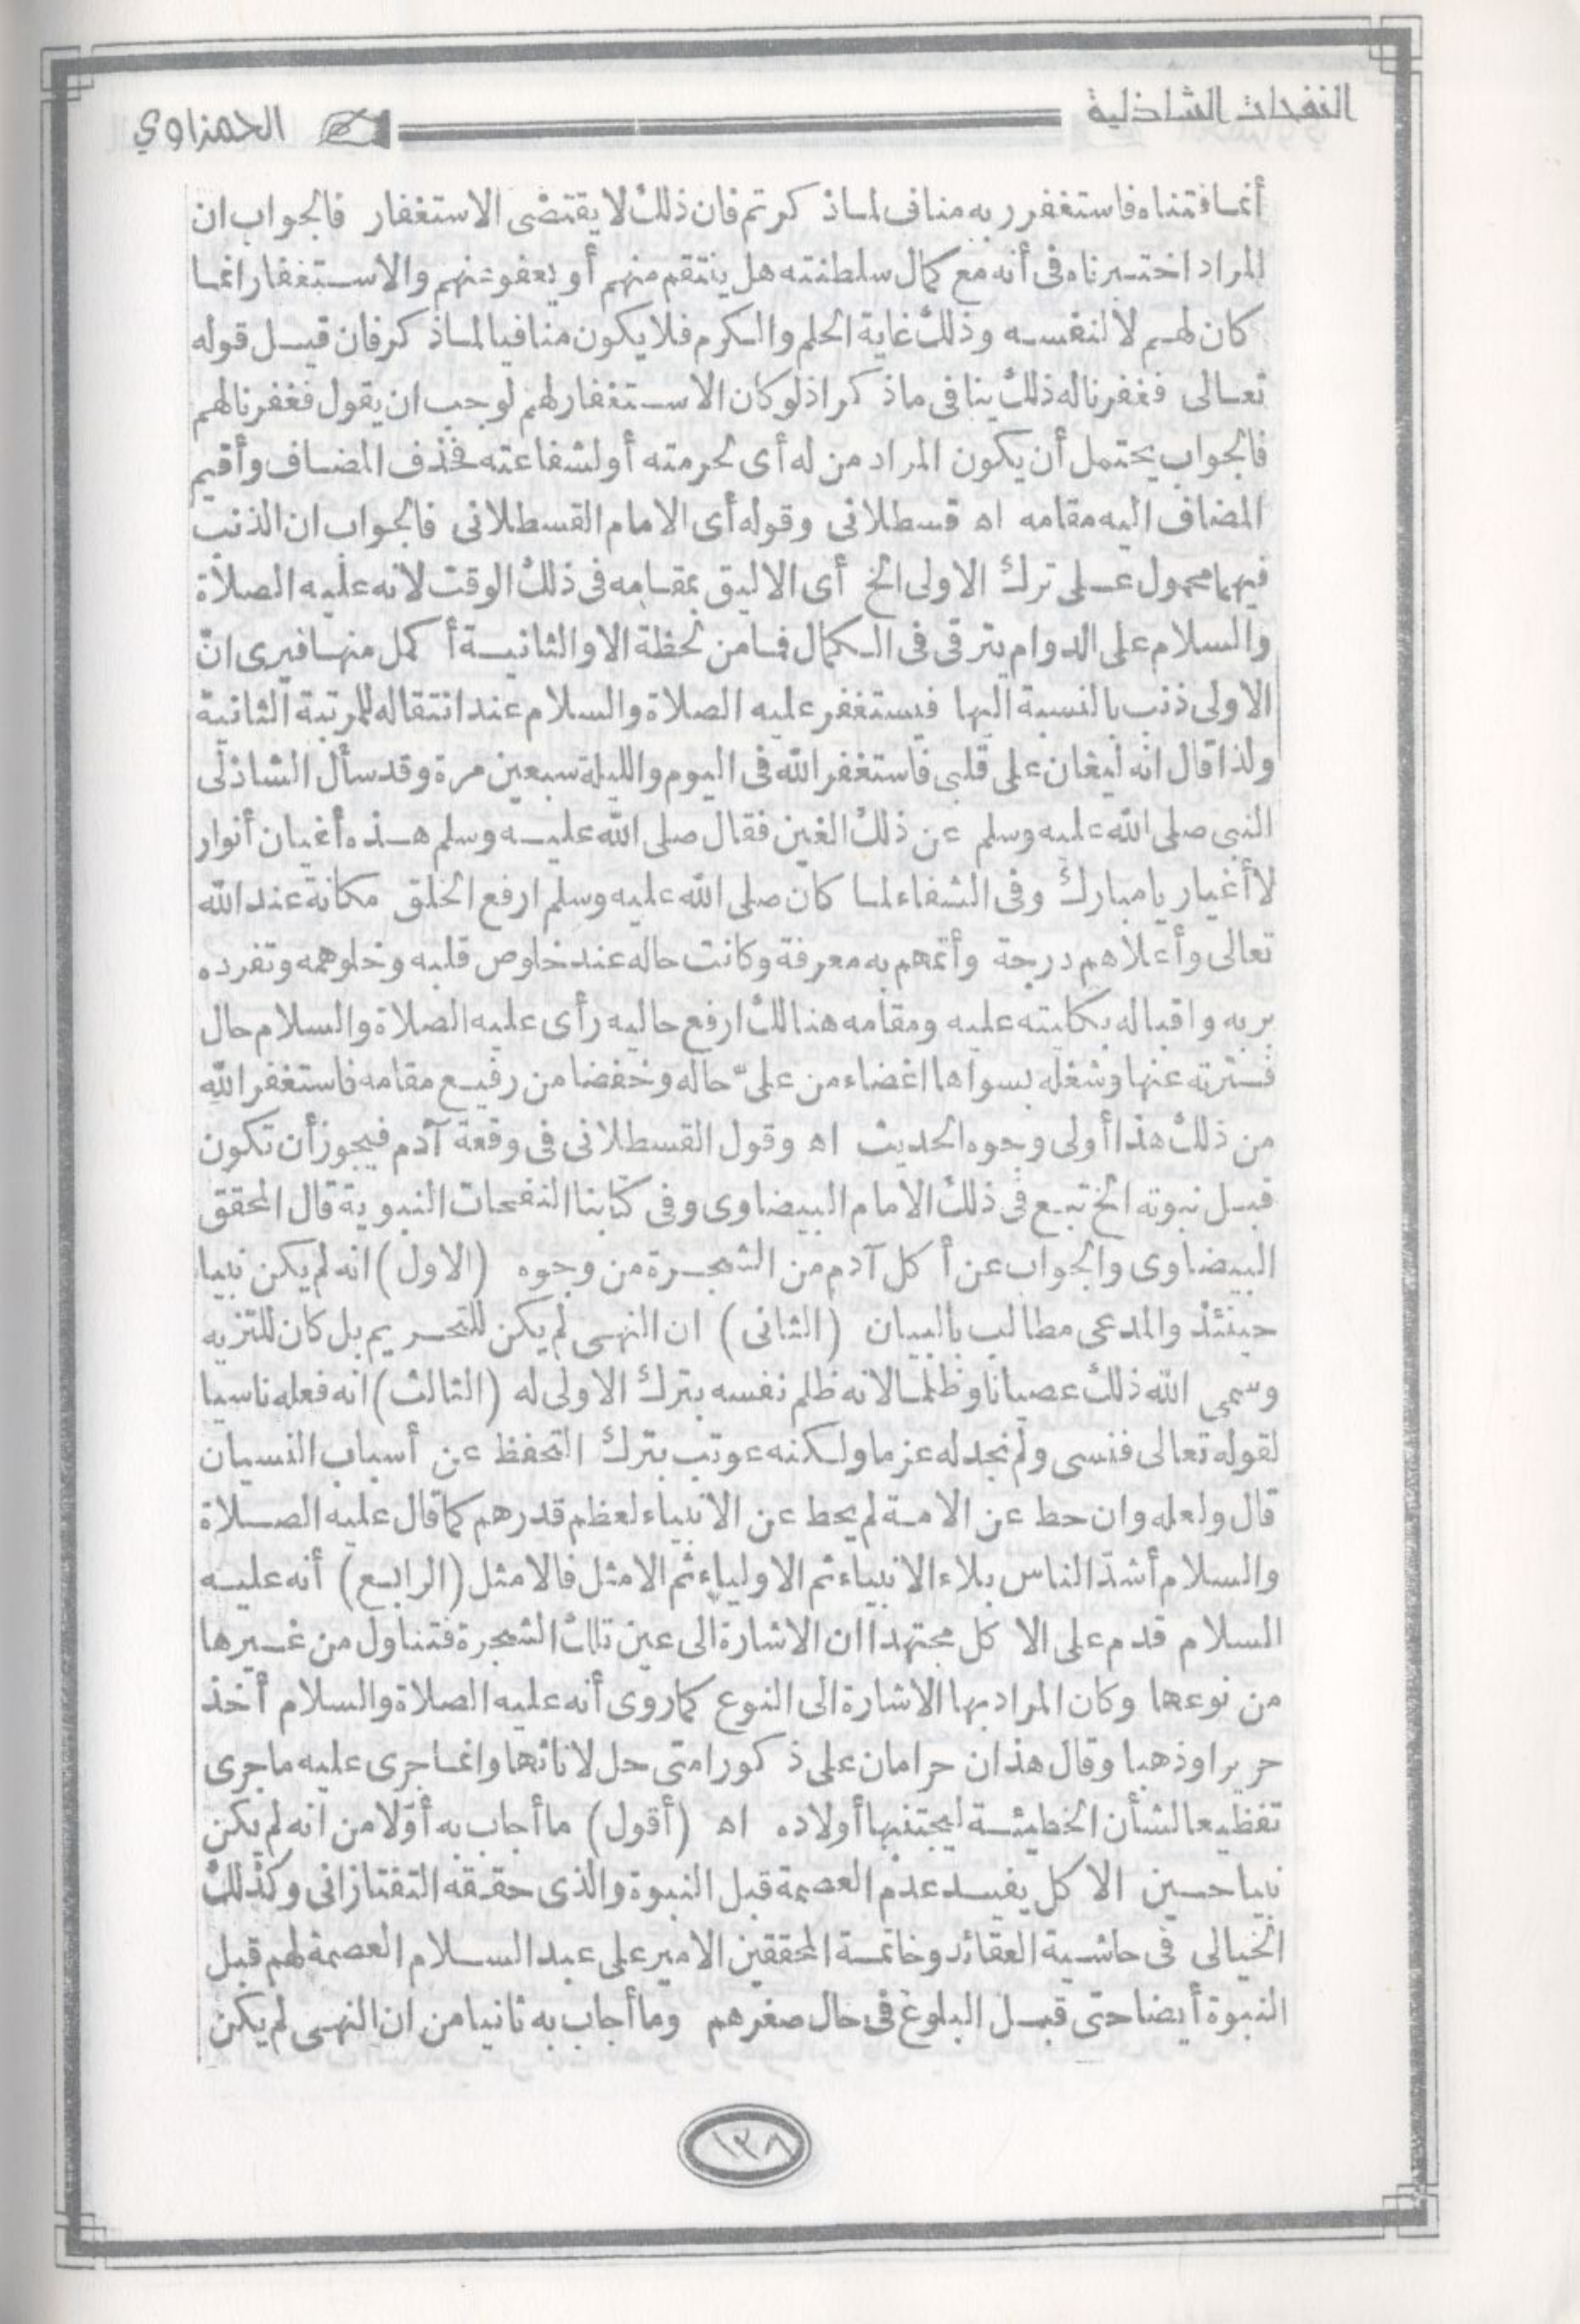 النفحات الشاذلية
الحمزاوي
أنما فتناه فاستغفر ربه مناف لما ذكرتم فان ذلك لا يقتضى الاستغفار فالجواب ان
المراد اختبرناه فى أنه مع كمال سلطنته هل ينتقم منهم أو يعفو عنهم والاستغفار انما
كان لهم لا لنفسه وذلك غاية الحلم والكرم فلا يكون منافيا لما ذكر فان قيل قوله
تعالى فغفرنا له ذلك ينافى ماذكر اذ لو كان الاستغفار لهم لوجب ان يقول فغفرنا لهم
فالجواب يحتمل أن يكون المراد من له أى لحرمته أو لشفاعته فحذف المضاف وأقيم
المضاف اليه مقامه اه قسطلانى وقوله أى الامام القسطلانى فالجواب ان الذنب
فيهما محمول على ترك الاولى الخ أى الاليق بمقامه فى ذلك الوقت لانه عليه الصلاة
والسلام على الدوام يترقى فى الكمال فما من لحظة الا والثانية أكمل منها فيرى ان
الاولى ذنب بالنسبة اليها فيستغفر عليه الصلاة والسلام عند انتقاله للمرتبة الثانية
ولذا قال انه ليغان على قلبى فاستغفر الله فى اليوم والليلة سبعين مرة وقد سأل الشاذلى
النبى صلى الله عليه وسلم عن ذلك الغين فقال صلى الله عليه وسلم هذه أغيان أنوار
لا أغيار يا مبارك وفى الشفاء لما كان صلى الله عليه وسلم ارفع الخلق مكانة عند الله
تعالى وأعلاهم درجة وأتمهم به معرفة وكانت حاله عند خلوص قلبه وخلو همه وتفرده
بربه واقباله بكليته عليه ومقامه هنالك ارفع حاليه رأى عليه الصلاة والسلام حال
فترته عنها وشغله بسواها اغضاء من علىّ حاله وخفضا من رفيع مقامه فاستغفر الله
من ذلك هذا أولى وجوه الحديث اه وقول القسطلانى فى وقعة آدم فيجوز أن تكون
قبل نبوته الخ تبع فى ذلك الامام البيضاوى وفى كتابنا النفحات النبوية قال المحقق
البيضاوى والجواب عن أكل آدم من الشجرة من وجوه (الاول) انه لم يكن نبيا
حينئذ والمدعى مطالب بالبيان (الثانى) ان النهى لم يكن للتحريم بل كان للتنزيه
وسمى الله ذلك عصيانا وظلما لانه ظلم نفسه بترك الاولى له (الثالث) انه فعله ناسيا
لقوله تعالى فنسى ولم نجد له عزما ولكنه عوتب بترك التحفظ عن أسباب النسيان
قال ولعله وان حط عن الامة لم يحط عن الانبياء لعظم قدرهم كما قال عليه الصلاة
والسلام أشدّ الناس بلاء الانبياء ثم الاولياء ثم الامثل فالامثل (الرابع) أنه عليه
السلام قدم على الاكل مجتهدا ان الاشارة الى عين تلك الشجرة فتناول من غيرها
من نوعها وكان المراد بها الاشارة الى النوع كما روى أنه عليه الصلاة والسلام أخذ
حريرا وذهبا وقال هذان حرامان على ذكور امتى حل لاناثها وانما جرى عليه ما جرى
تفظيعا لشأن الخطيئة ليجتنبها أولاده اه (أقول) ما أجاب به أوّلا من انه لم يكن
نبيا حين الاكل يفيد عدم العصمة قبل النبوة والذى حققه التفتازانى وكذلك
الخيالى فى حاشية العقائد وخاتمة المحققين الامير على عبد السلام العصمة لهم قبل
النبوة أيضا حتى قبل البلوغ فى حال صغرهم وما أجاب به ثانيا من ان النهى لم يكن
١٣٨